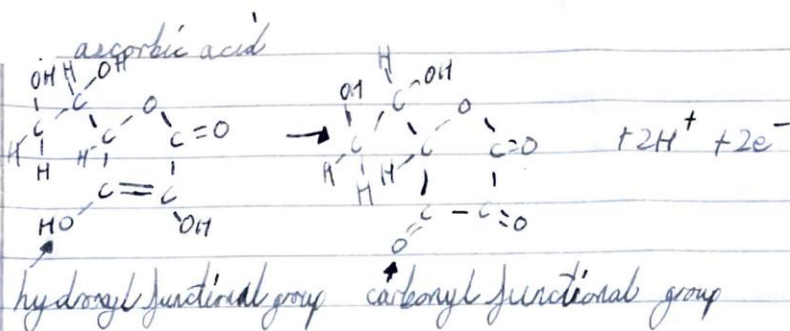 ascorbic acid
OH H OH H OH
C O OH C O
C C C=O → C C C=O +2H⁺ +2e⁻
H H H H H H
C=C C-C
HO OH O O
hydroxyl functional group carbonyl functional group